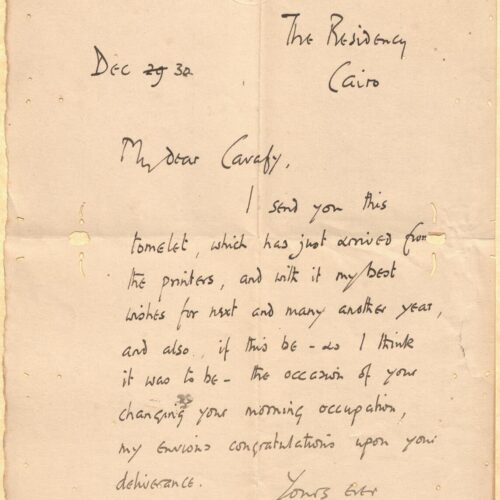 The Residency
Cairo
Dec 29 30
My dear Cavafy,
I send you this
tomelet, which has just arrived from
the printers, and with it my best
wishes for next and many another year,
and also, if this be - as I think
it was to be - the occasion of your
changing your morning occupation,
my envious congratulations upon your
deliverance.
Yours ever